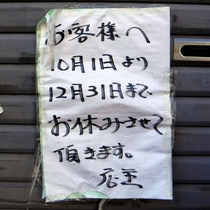 お客様へ
10月1日より
12月31日まで、
お休みさせて
頂きます。
店主